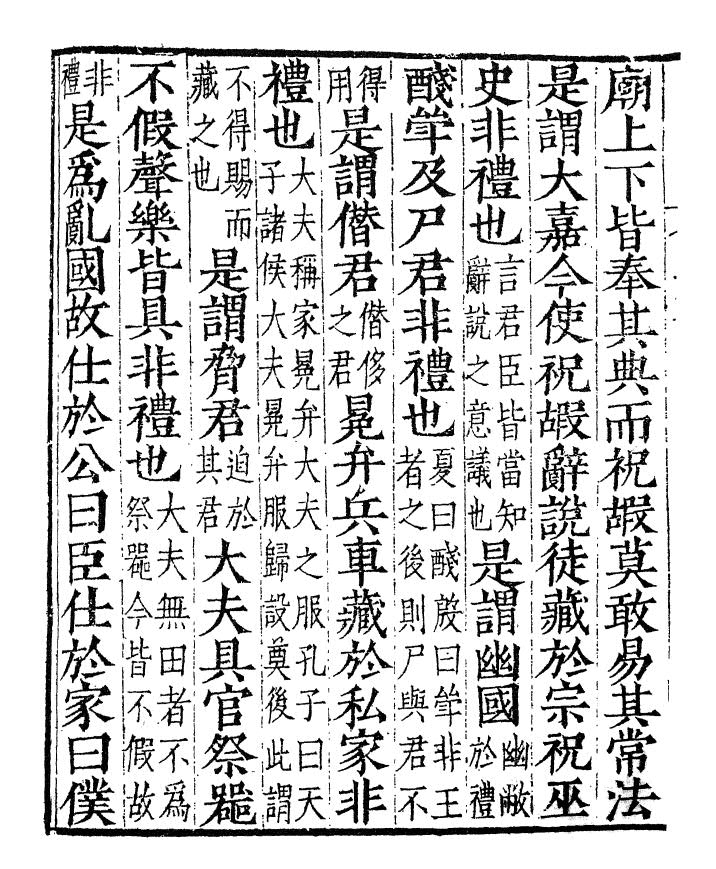 廟上下皆奉其典而祝嘏莫敢易其常法
是謂大嘉今使祝嘏辭說徒藏於宗祝巫
史非禮也言君臣皆當知辭說之意議也是謂幽國幽敝於禮
醆斝及尸君非禮也夏曰醆殷曰斝非王者之後則尸與君不
得用是謂僭君僭侈之君冕弁兵車藏於私家非
禮也大夫稱家冕弁大夫之服孔子曰天子諸侯大夫冕弁服歸設奠後此謂
不得賜而藏之也是謂脅君迫於其君大夫具官祭器
不假聲樂皆具非禮也大夫無田者不為祭器今皆不假故
非禮是爲亂國故仕於公曰臣仕於家曰僕